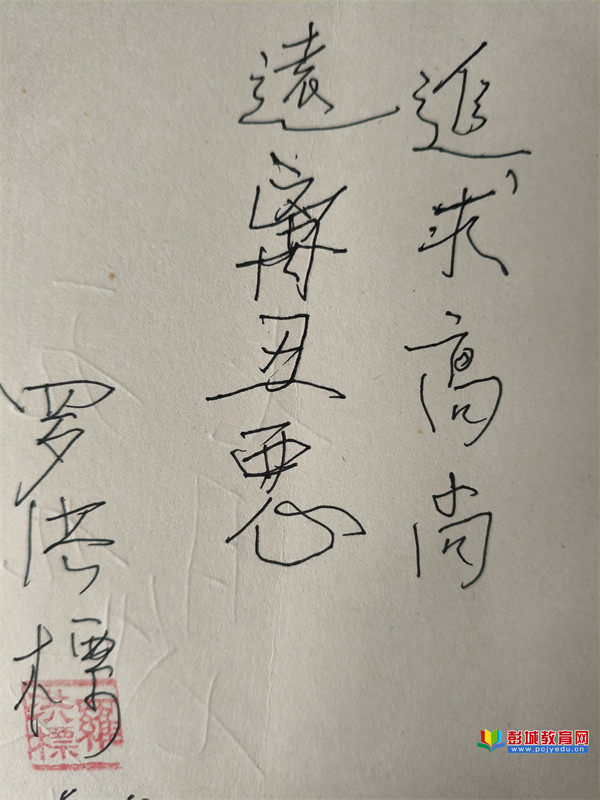 追求高尚
遠離丑惡
罗洪標
羅洪標
彭城教育网
www.pcjyedu.cn